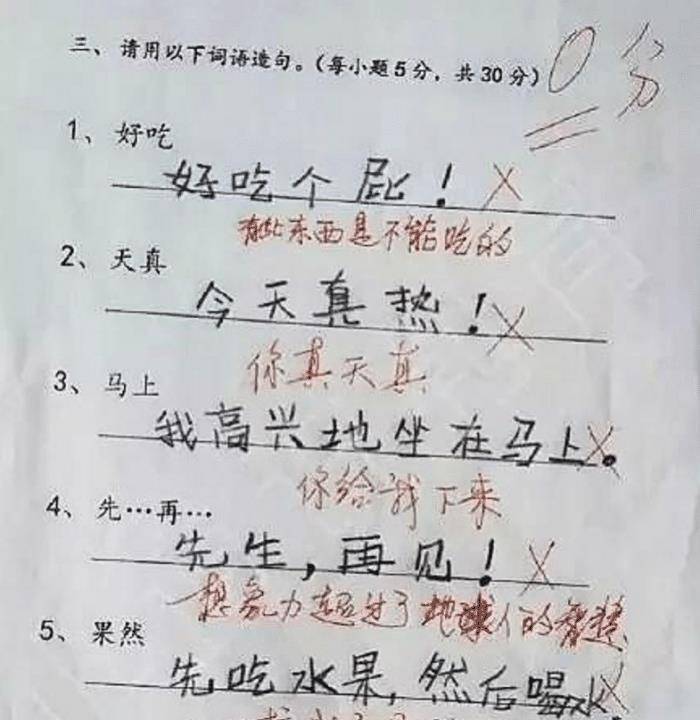 三、请用以下词语造句。（每小题5分，共30分）0分
1、好吃
好吃个屁！
有些东西是不能吃的
2、天真
今天真热！
你真天真
3、马上
我高兴地坐在马上。
你给我下来
4、先…再…
先生，再见！
想象力超过了地球人的智慧
5、果然
先吃水果，然后喝水